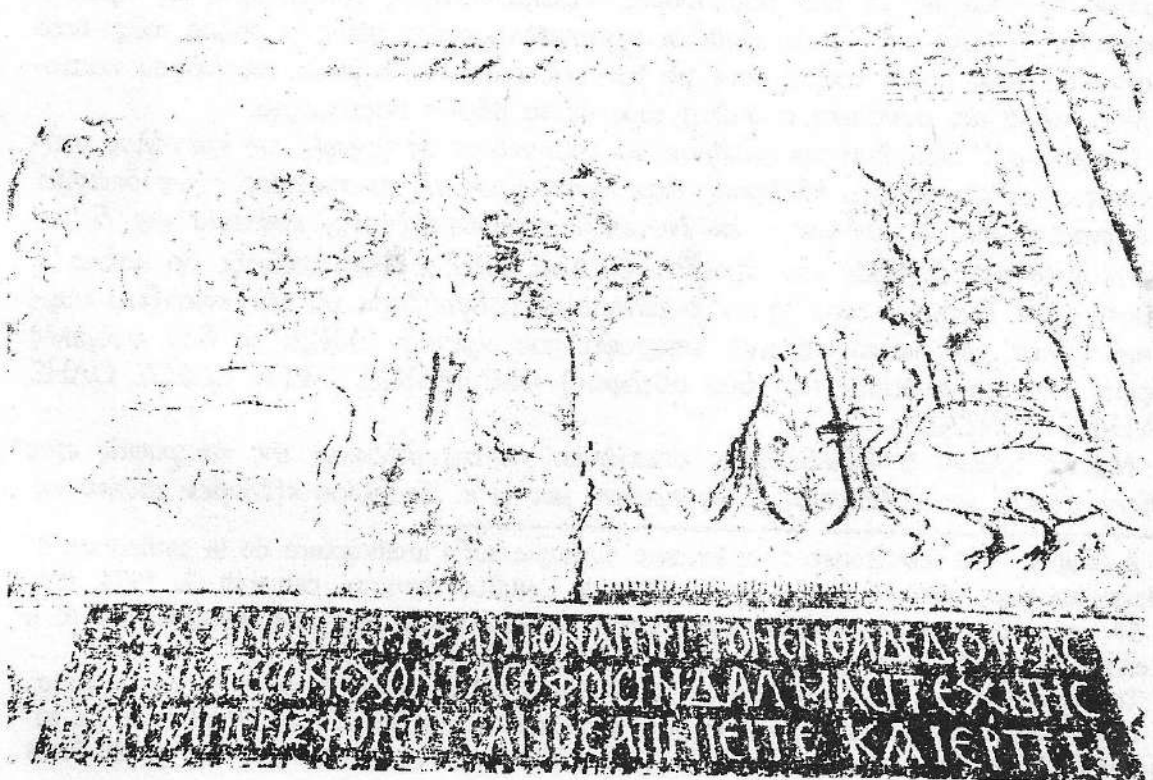 ѠΚΕΑΝΟΝΠΕΡΙΦΑΝΤΟΝΑΠΙΡΙΤΟΝΕΝΘΑΔΕΔΟΡΚΑC
ΓΑΙΑΝΜΕCCΟΝΕΧΟΝΤΑCΟΦΟΙCΙΝΔΑΛΜΑCΙΤΕΧΝΗC
ΠΑΝΤΑΠΕΡΙΞΦΟΡΕΟΥCΑΝΟCΑΠΝΙΕΙΤΕ ΚΑΙΕΡΠΕΙ